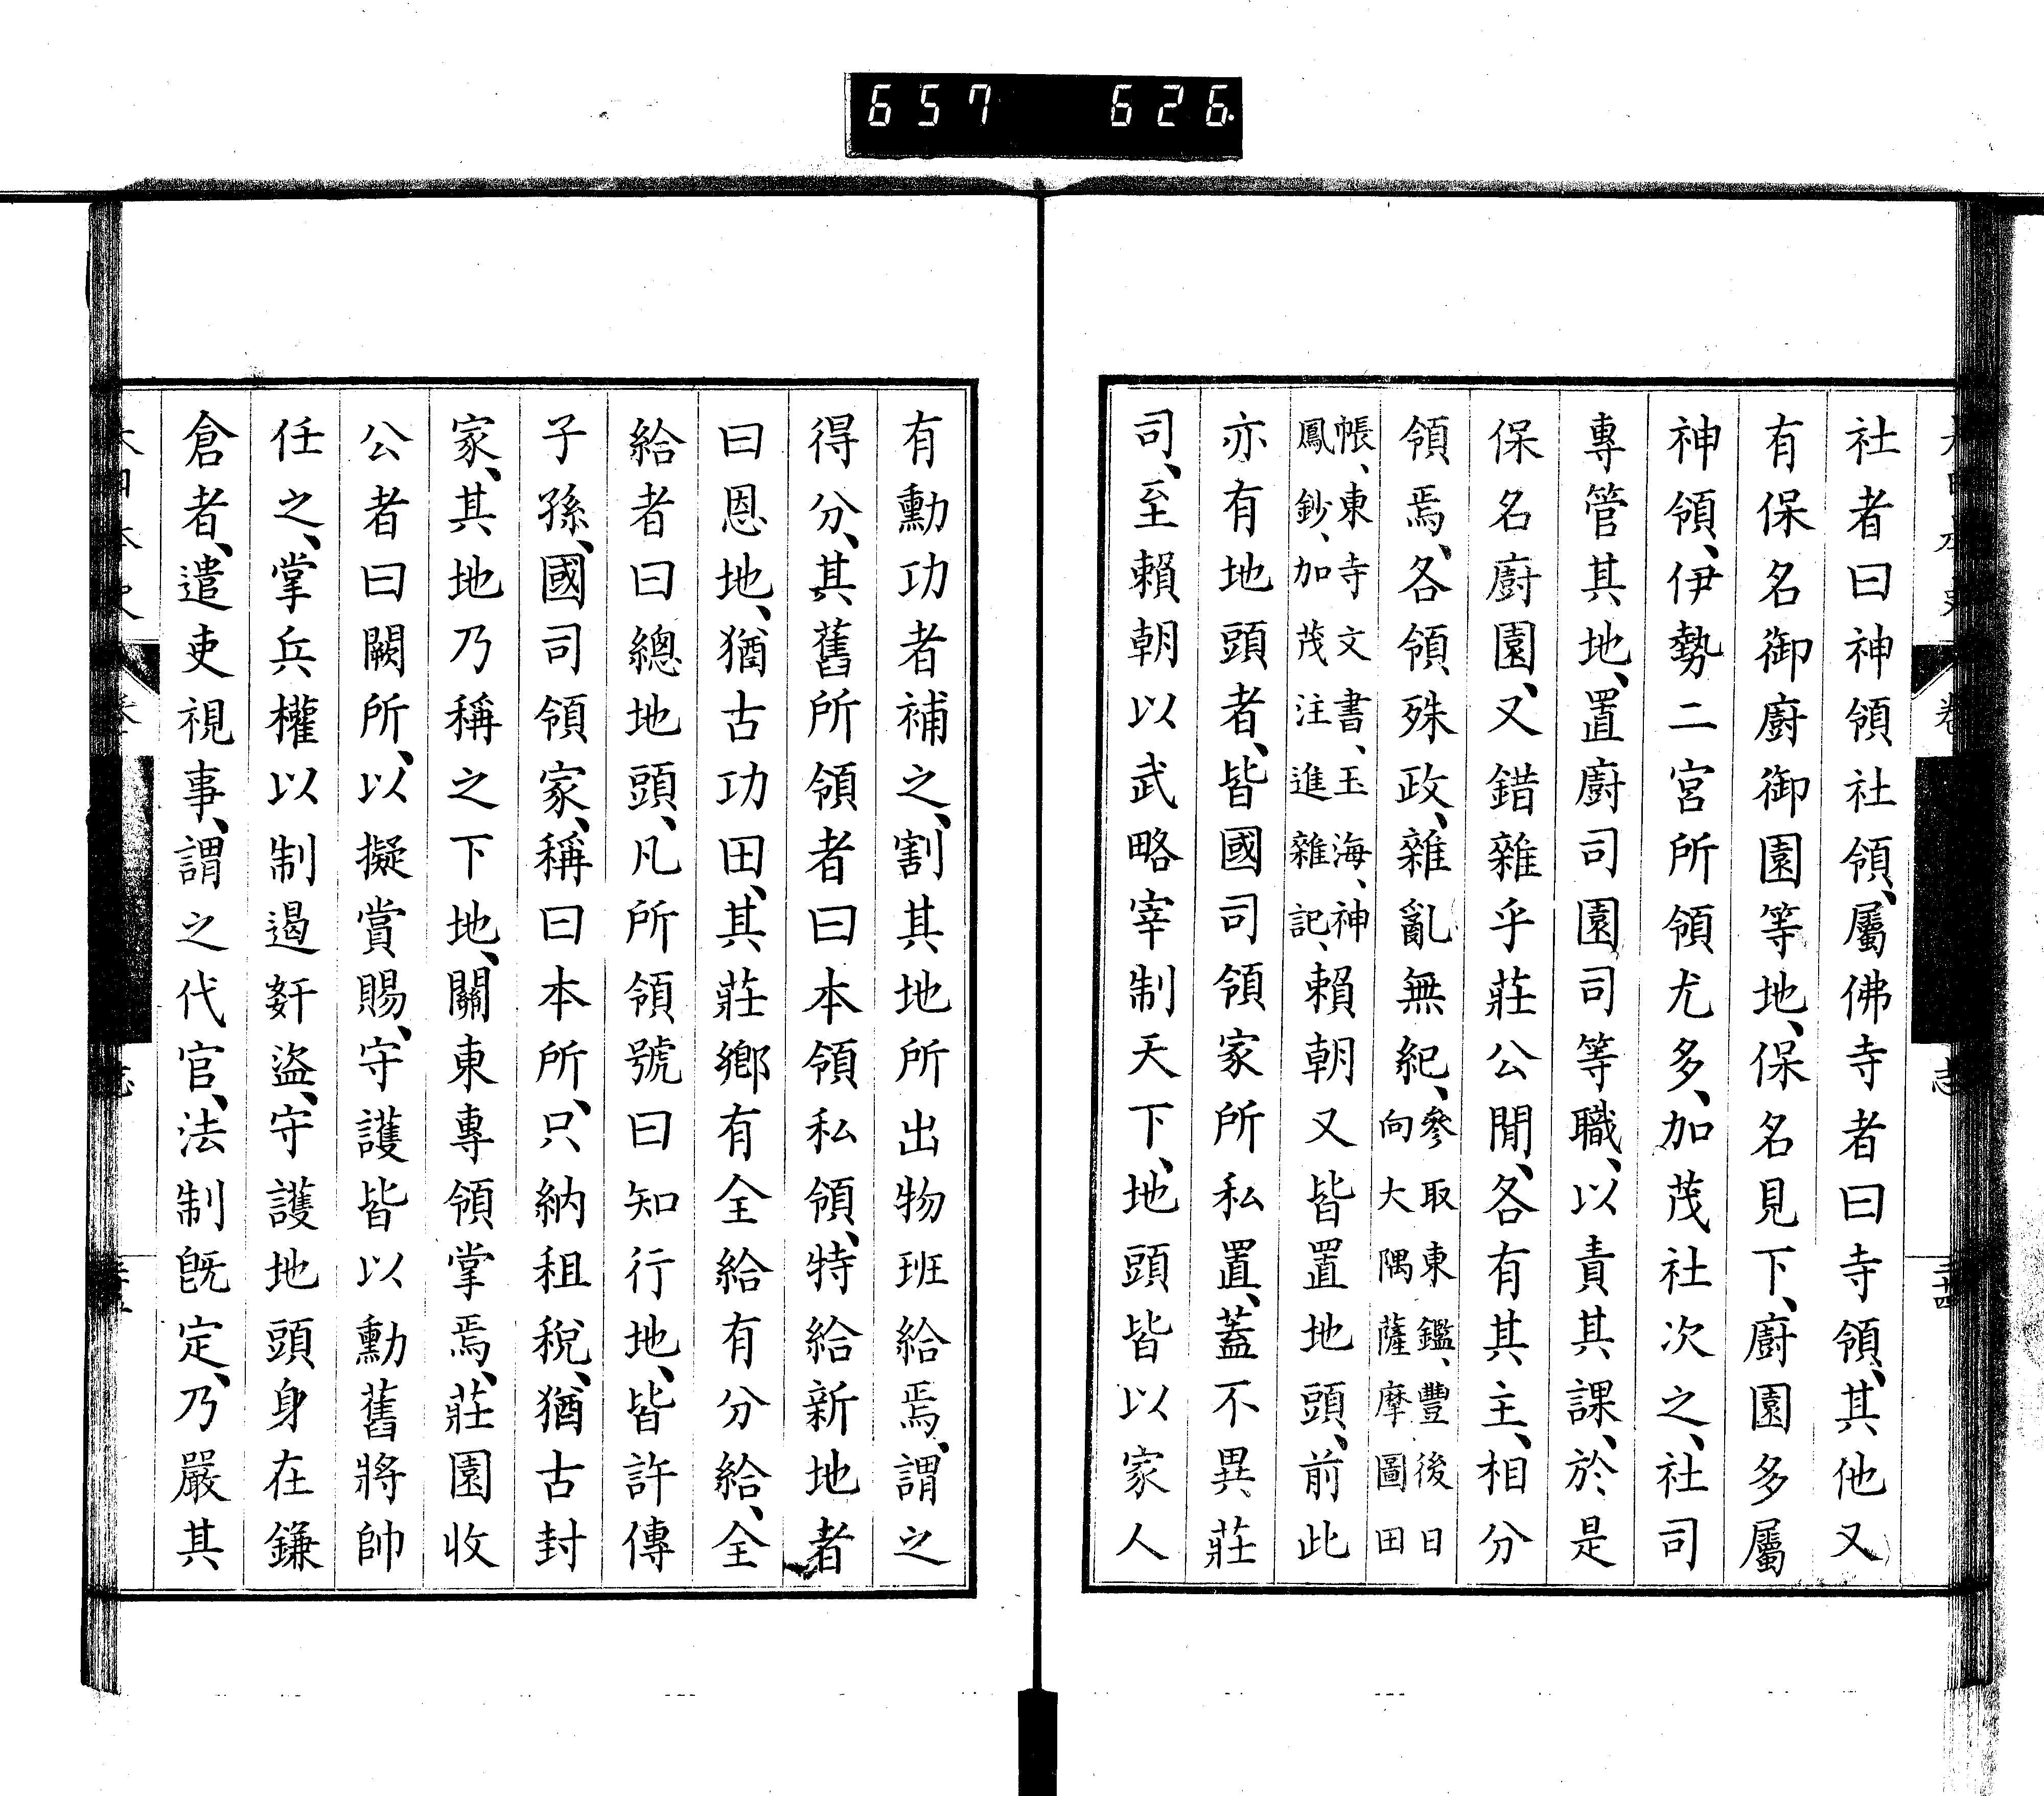 657 626
社者曰神領社領、屬佛寺者曰寺領、其他又
有保名御廚御園等地、保名見下、廚園多屬
神領、伊勢二宮所領尤多、加茂社次之、社司
專管其地、置廚司園司等職、以責其課、於是
保名廚園、又錯雜乎莊公閒、各有其主、相分
領焉、各領殊政、雜亂無紀、參取東鑑、豐後日向大隅薩摩圖田
帳、東寺文書、玉海、神鳳鈔、加茂注進雜記、賴朝又皆置地頭、前此
亦有地頭者、皆國司領家所私置、蓋不異莊
司、至賴朝以武略宰制天下、地頭皆以家人
志
三十四
有勳功者補之、割其地所出物班給焉、謂之
得分、其舊所領者曰本領私領、特給新地者
曰恩地、猶古功田、其莊鄉有全給有分給、全
給者曰總地頭、凡所領號曰知行地、皆許傳
子孫、國司領家、稱曰本所、只納租稅、猶古封
家、其地乃稱之下地、關東專領掌焉、莊園收
公者曰闕所、以擬賞賜、守護皆以勳舊將帥
任之、掌兵權以制遏奸盜、守護地頭身在鎌
倉者、遣吏視事、謂之代官、法制既定、乃嚴其